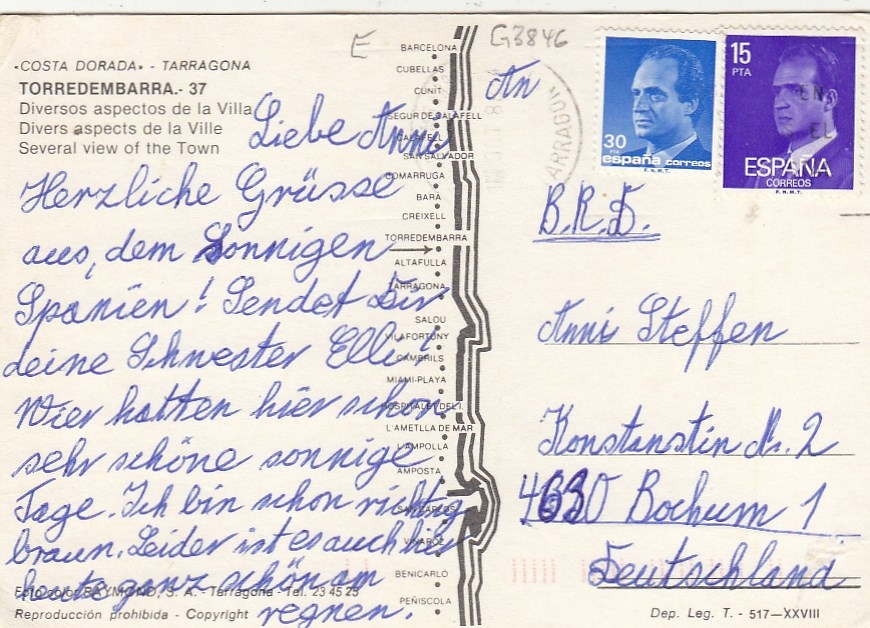 E
G3846
«COSTA DORADA» - TARRAGONA
TORREDEMBARRA.- 37
Diversos aspectos de la Villa
Divers aspects de la Ville
Several view of the Town
Liebe Anni
Herzliche Grüsse
aus, dem Sonnigen
Spanien! Sendet Dir
deine Schwester Elli!
Wier hatten hier schon
sehr schöne sonnige
Tage. Ich bin schon richtig
braun. Leider ist es auch hier
heute ganz schön am
regnen.
Foto color RAYMOND, S. A. - Tarragona - Tel. 23 45 25
Reproducción prohibida - Copyright
BARCELONA
CUBELLAS
CUNIT
SEGUR DE CALAFELL
CALAFELL
SAN SALVADOR
COMARRUGA
BARÁ
CREIXELL
TORREDEMBARRA
ALTAFULLA
TARRAGONA
SALOU
VILAFORTUNY
CAMBRILS
MIAMI-PLAYA
HOSPITALET DEL I.
L'AMETLLA DE MAR
L'AMPOLLA
AMPOSTA
SAN CARLOS
VINAROZ
BENICARLÓ
PEÑISCOLA
30
PTA
españa correos
F.N.M.T.
15
PTA
ESPAÑA
CORREOS
F.N.M.T.
TARRAGON
An
B.R.D.
Anni Steffen
Konstanstin Nr. 2
4630 Bochum 1
Deutschland
Dep. Leg. T. - 517—XXVIII